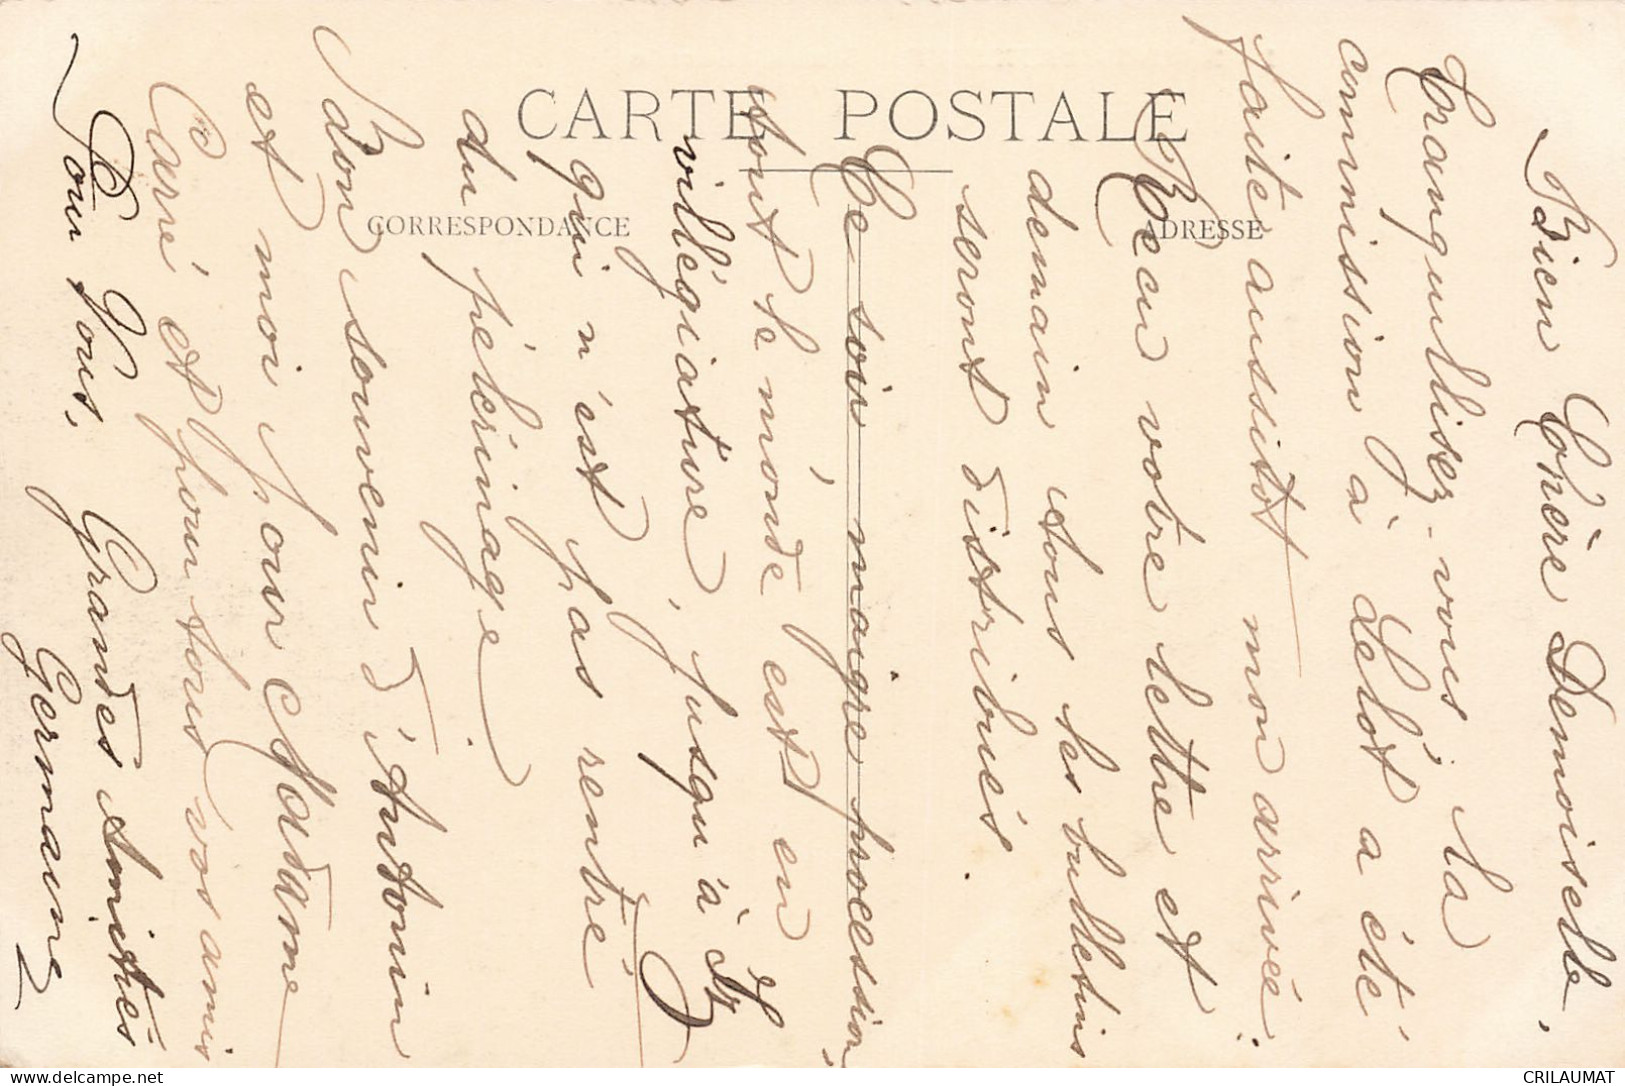 CARTE POSTALE
CORRESPONDANCE
ADRESSE
Bien Chère Demoiselle,
Tranquillisez-vous, la
commission à Lélot a été
faite aussitôt mon arrivée.
Recu votre lettre et
demain tous les bulletins
seront distribués.
Ce soir maigre procession,
tout le monde est en
villégiature, jusqu'à
qui n'est pas rentré
du pélerinage.
Bon souvenir d'Antonin
et moi pour Madame
Carré et pour tous vos amis
Pour Vous, Grandes Amitiés
Germaine
CRILAUMAT